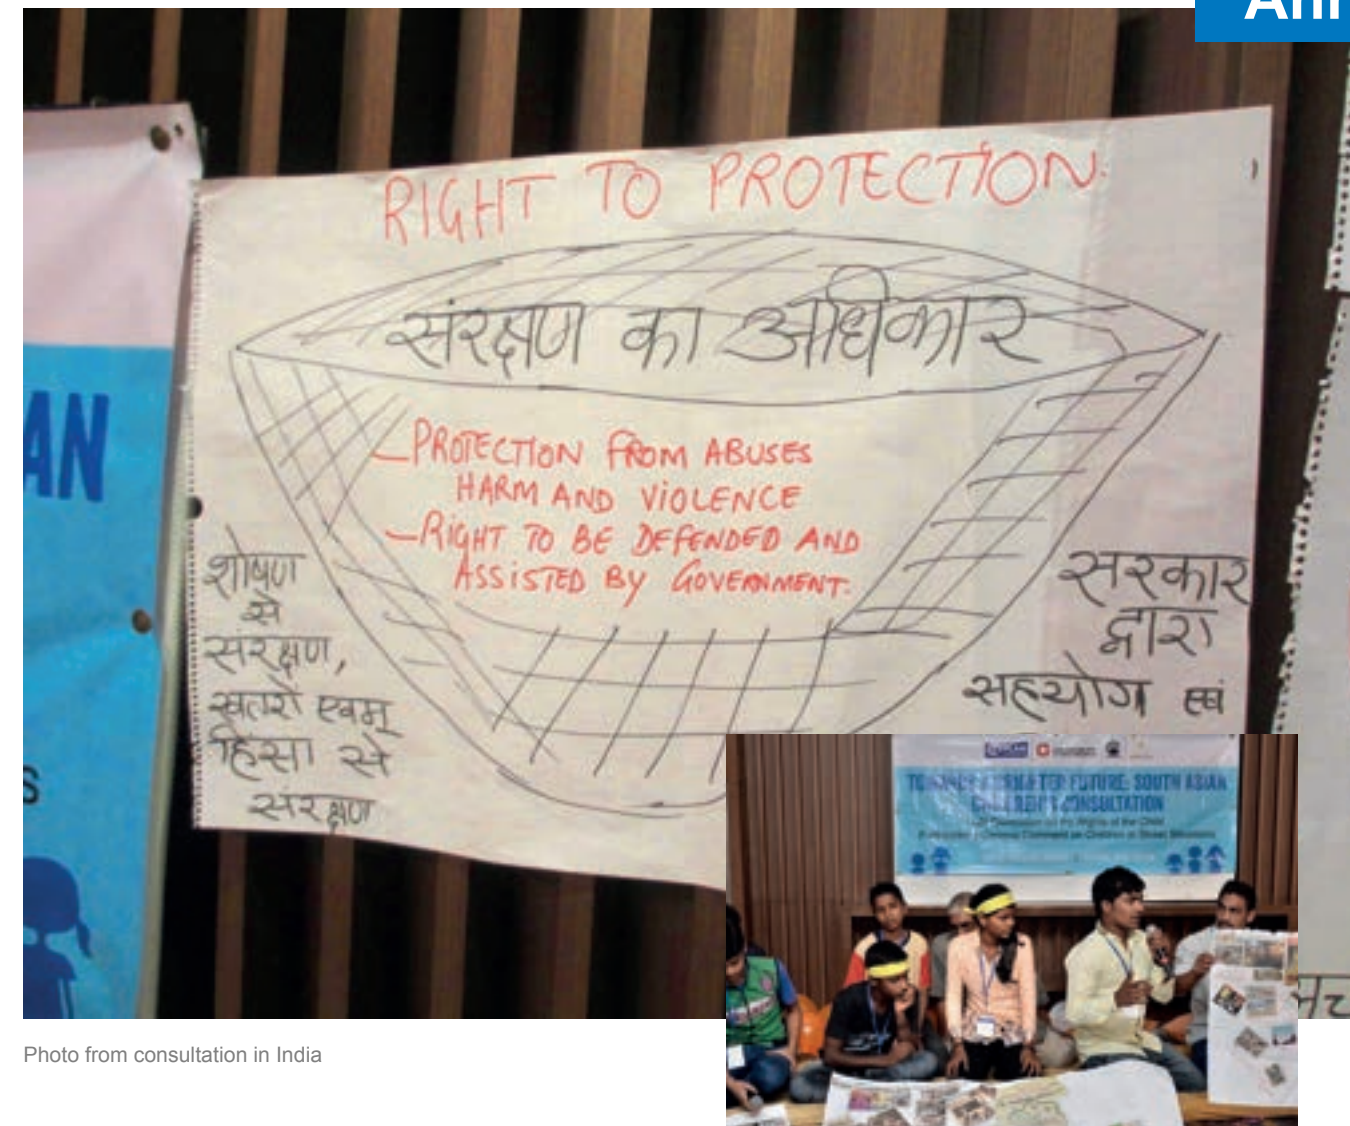 RIGHT TO PROTECTION.
संरक्षण का अधिकार
– PROTECTION FROM ABUSES
HARM AND VIOLENCE
– RIGHT TO BE DEFENDED AND
ASSISTED BY GOVERNMENT.
शोषण
से
संरक्षण,
खतरों एवम्
हिंसा से
संरक्षण
सरकार
द्वारा
सहयोग एवं
AN
S
FUTURE: SOUTH ASIAN
CONSULTATION
Photo from consultation in India